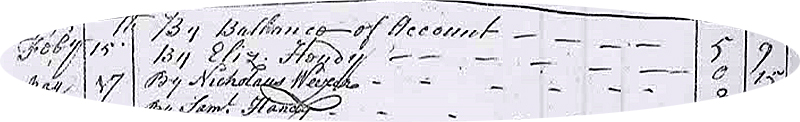 11 By Ballance of Account
Feby 15 By Eliz. Handy 5 9
27 By Nicholaus Weyer 0 15
By Saml. Handy